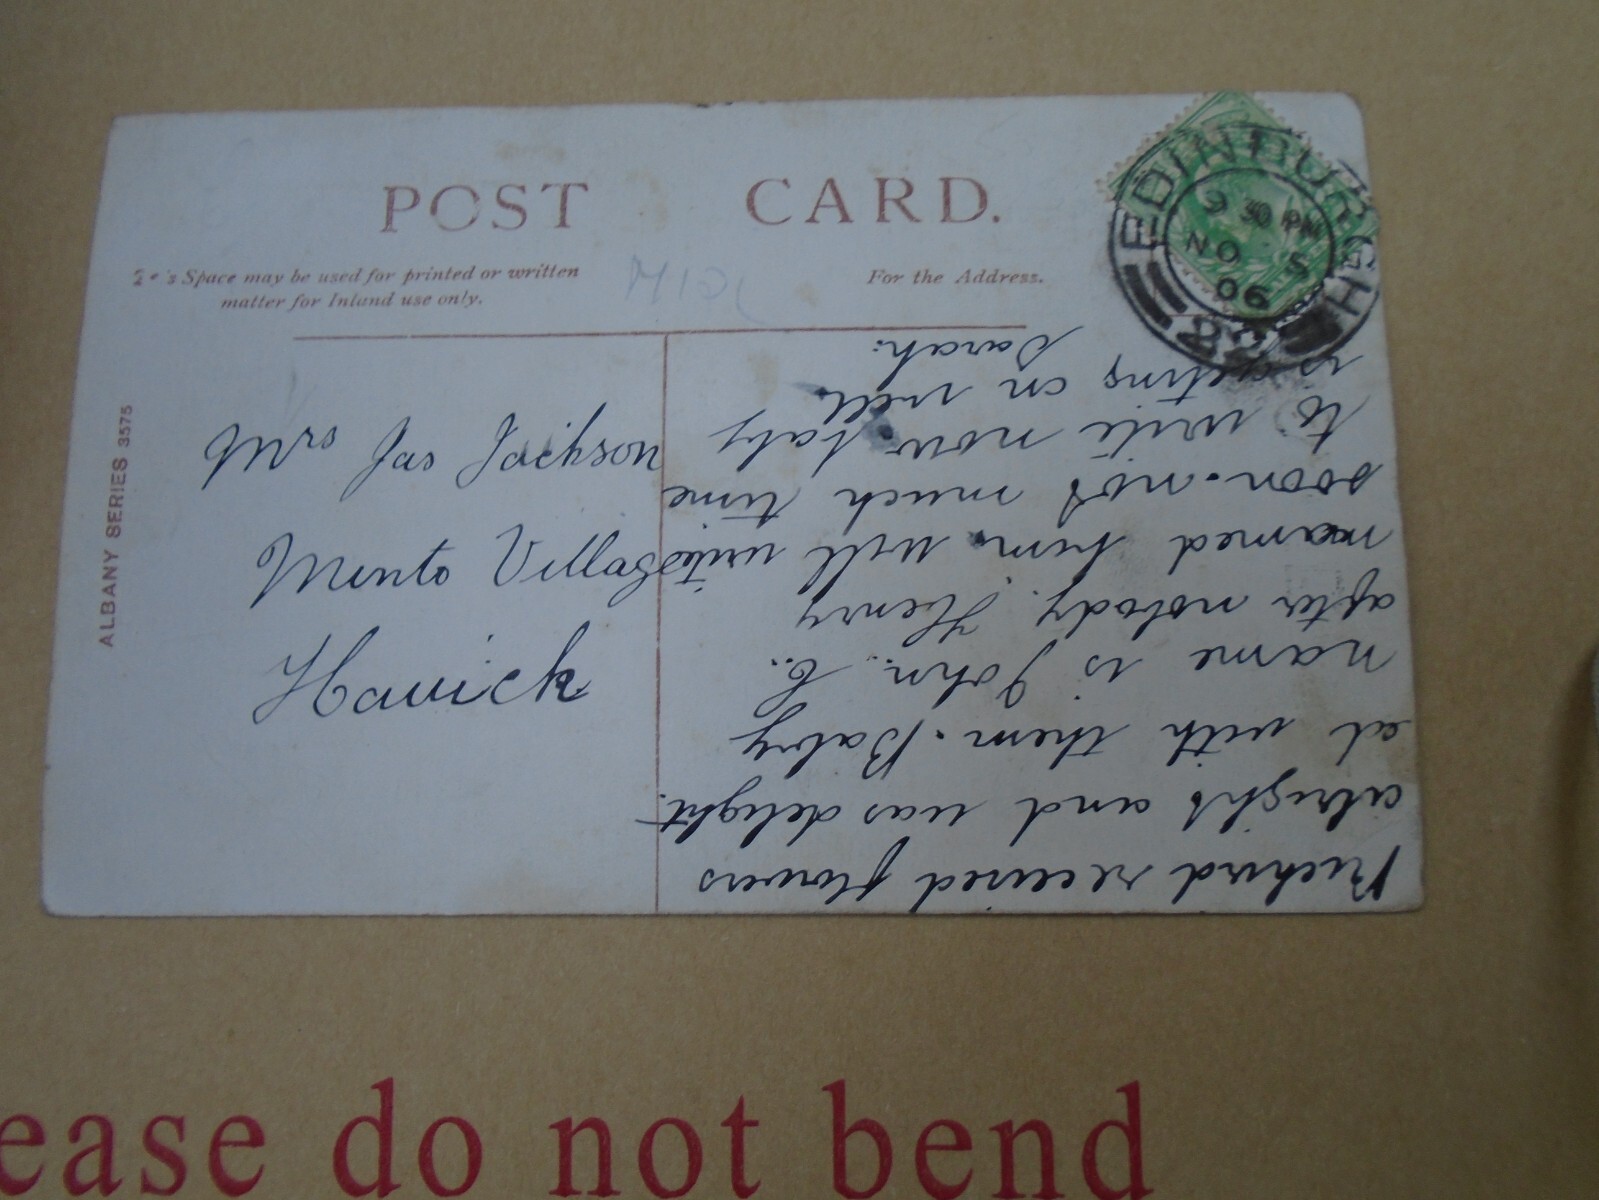 POST CARD.
Space may be used for printed or written
matter for Inland use only.
For the Address.
EDINBURGH
9 30 PM
NO 5
06
ALBANY SERIES 3575
Mrs Jas Jackson
Minto Village
Hawick
Richard received flowers
alright and was delight
ed with them. Baby
name is John. C.
after nobody. Henry
named him. will write
soon. not much time
to write now. baby
is getting on well.
Sarah.
ease do not bend